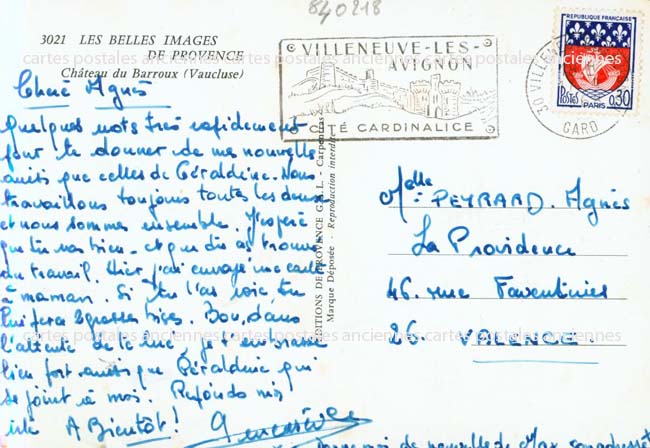 840218
3021 LES BELLES IMAGES
DE PROVENCE
Château du Barroux (Vaucluse)
VILLENEUVE-LES-
AVIGNON
CITÉ CARDINALICE
30 VILLENEUVE
GARD
REPUBLIQUE FRANÇAISE
POSTES PARIS 0,30
cartes postales anciennes cartes postales anciennes
Chère Agnès
Quelques mots très rapidement
pour te donner de mes nouvelles
ainsi que celles de Géraldine. Nous
travaillons toujours toutes les deux
et nous sommes ensemble. J'espère
que tu vas bien. et que tu as trouvé
du travail. Hier j'ai envoyé une carte
à maman. Si tu l'as vois, tu
lui feras 2 grosses bises. Bon, dans
l'attente de te lire, je t'embrasse
bien fort ainsi que Géraldine qui
se joint à moi. Réponds moi
vite A Bientôt!
EDITIONS DE PROVENCE G.A.L. - Carpentras
Marque Déposée - Reproduction interdite
Melle PEYRARD. Agnès
La Providence
46. rue Faventines
26. VALENCE.
cartes postales anciennes cartes postales anciennes
moi de nouvelles de Max